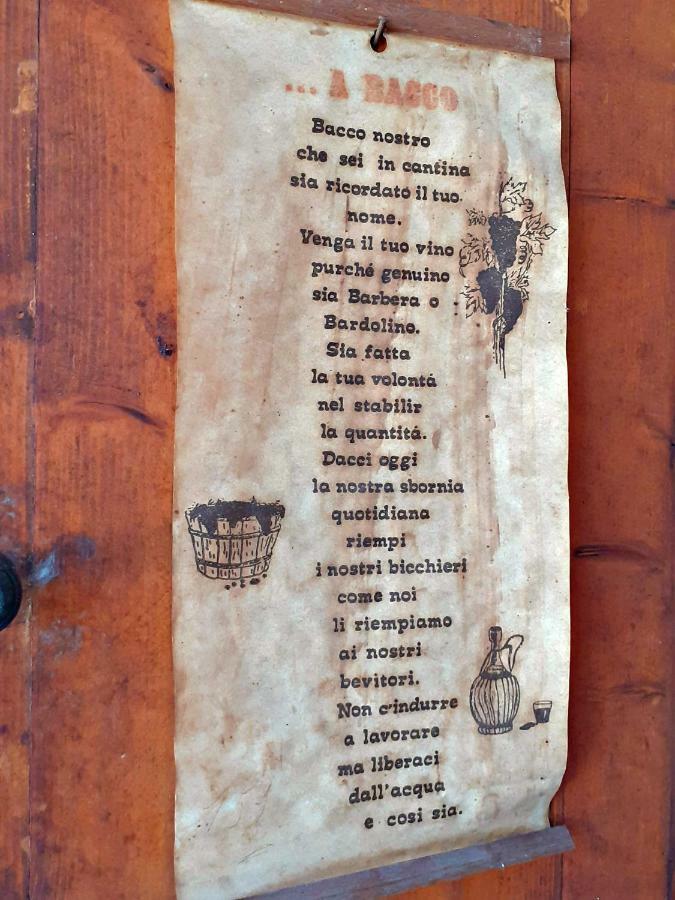 ... A BACCO
Bacco nostro
che sei in cantina
sia ricordato il tuo
nome.
Venga il tuo vino
purché genuino
sia Barbera o
Bardolino.
Sia fatta
la tua volontá
nel stabilir
la quantitá.
Dacci oggi
la nostra sbornia
quotidiana
riempi
i nostri bicchieri
come noi
li riempiamo
ai nostri
bevitori.
Non c'indurre
a lavorare
ma liberaci
dall'acqua
e cosi sia.